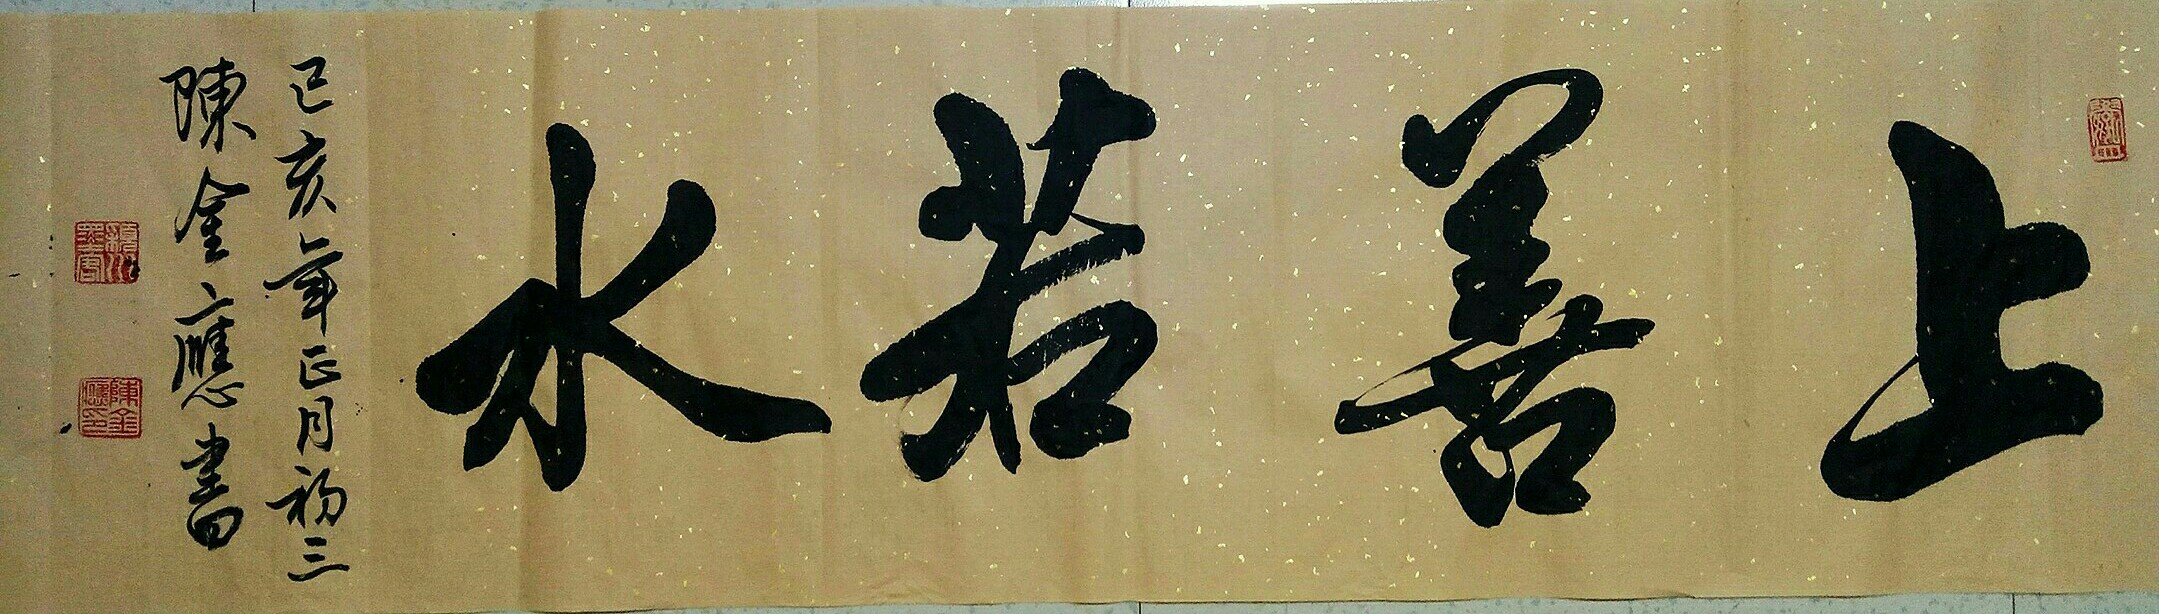 上善若水
己亥年正月初三
陳金應書
陳金應印